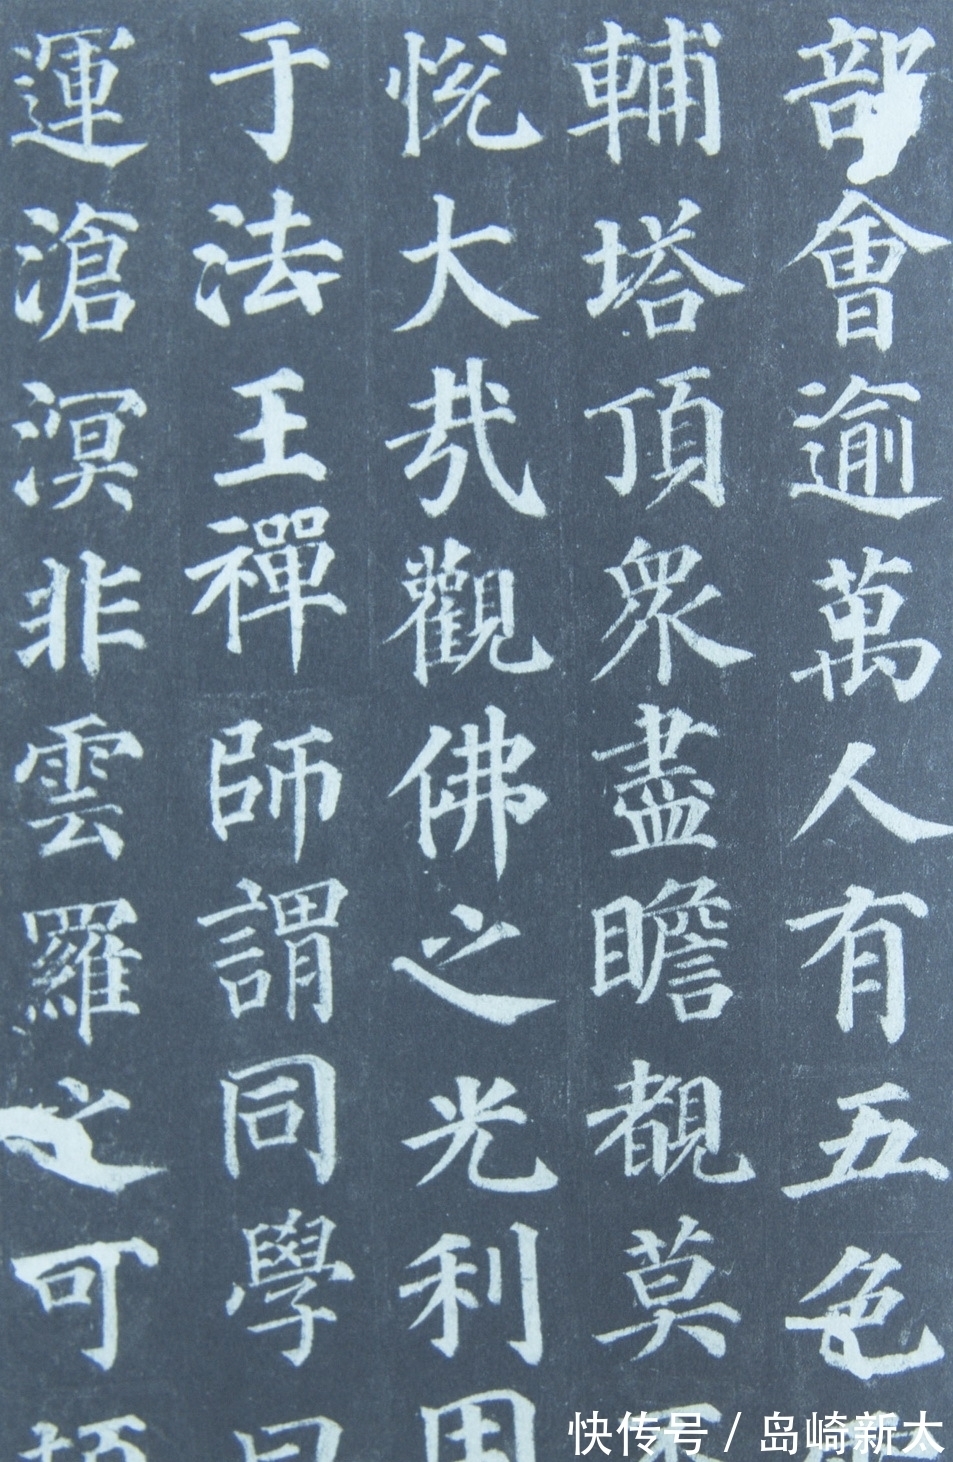 部會逾萬人有五色
輔塔頂眾盡瞻睹莫
悅大哉觀佛之光利
于法王禪師謂同學
運滄溟非雲羅之可
快传号 / 岛崎新太